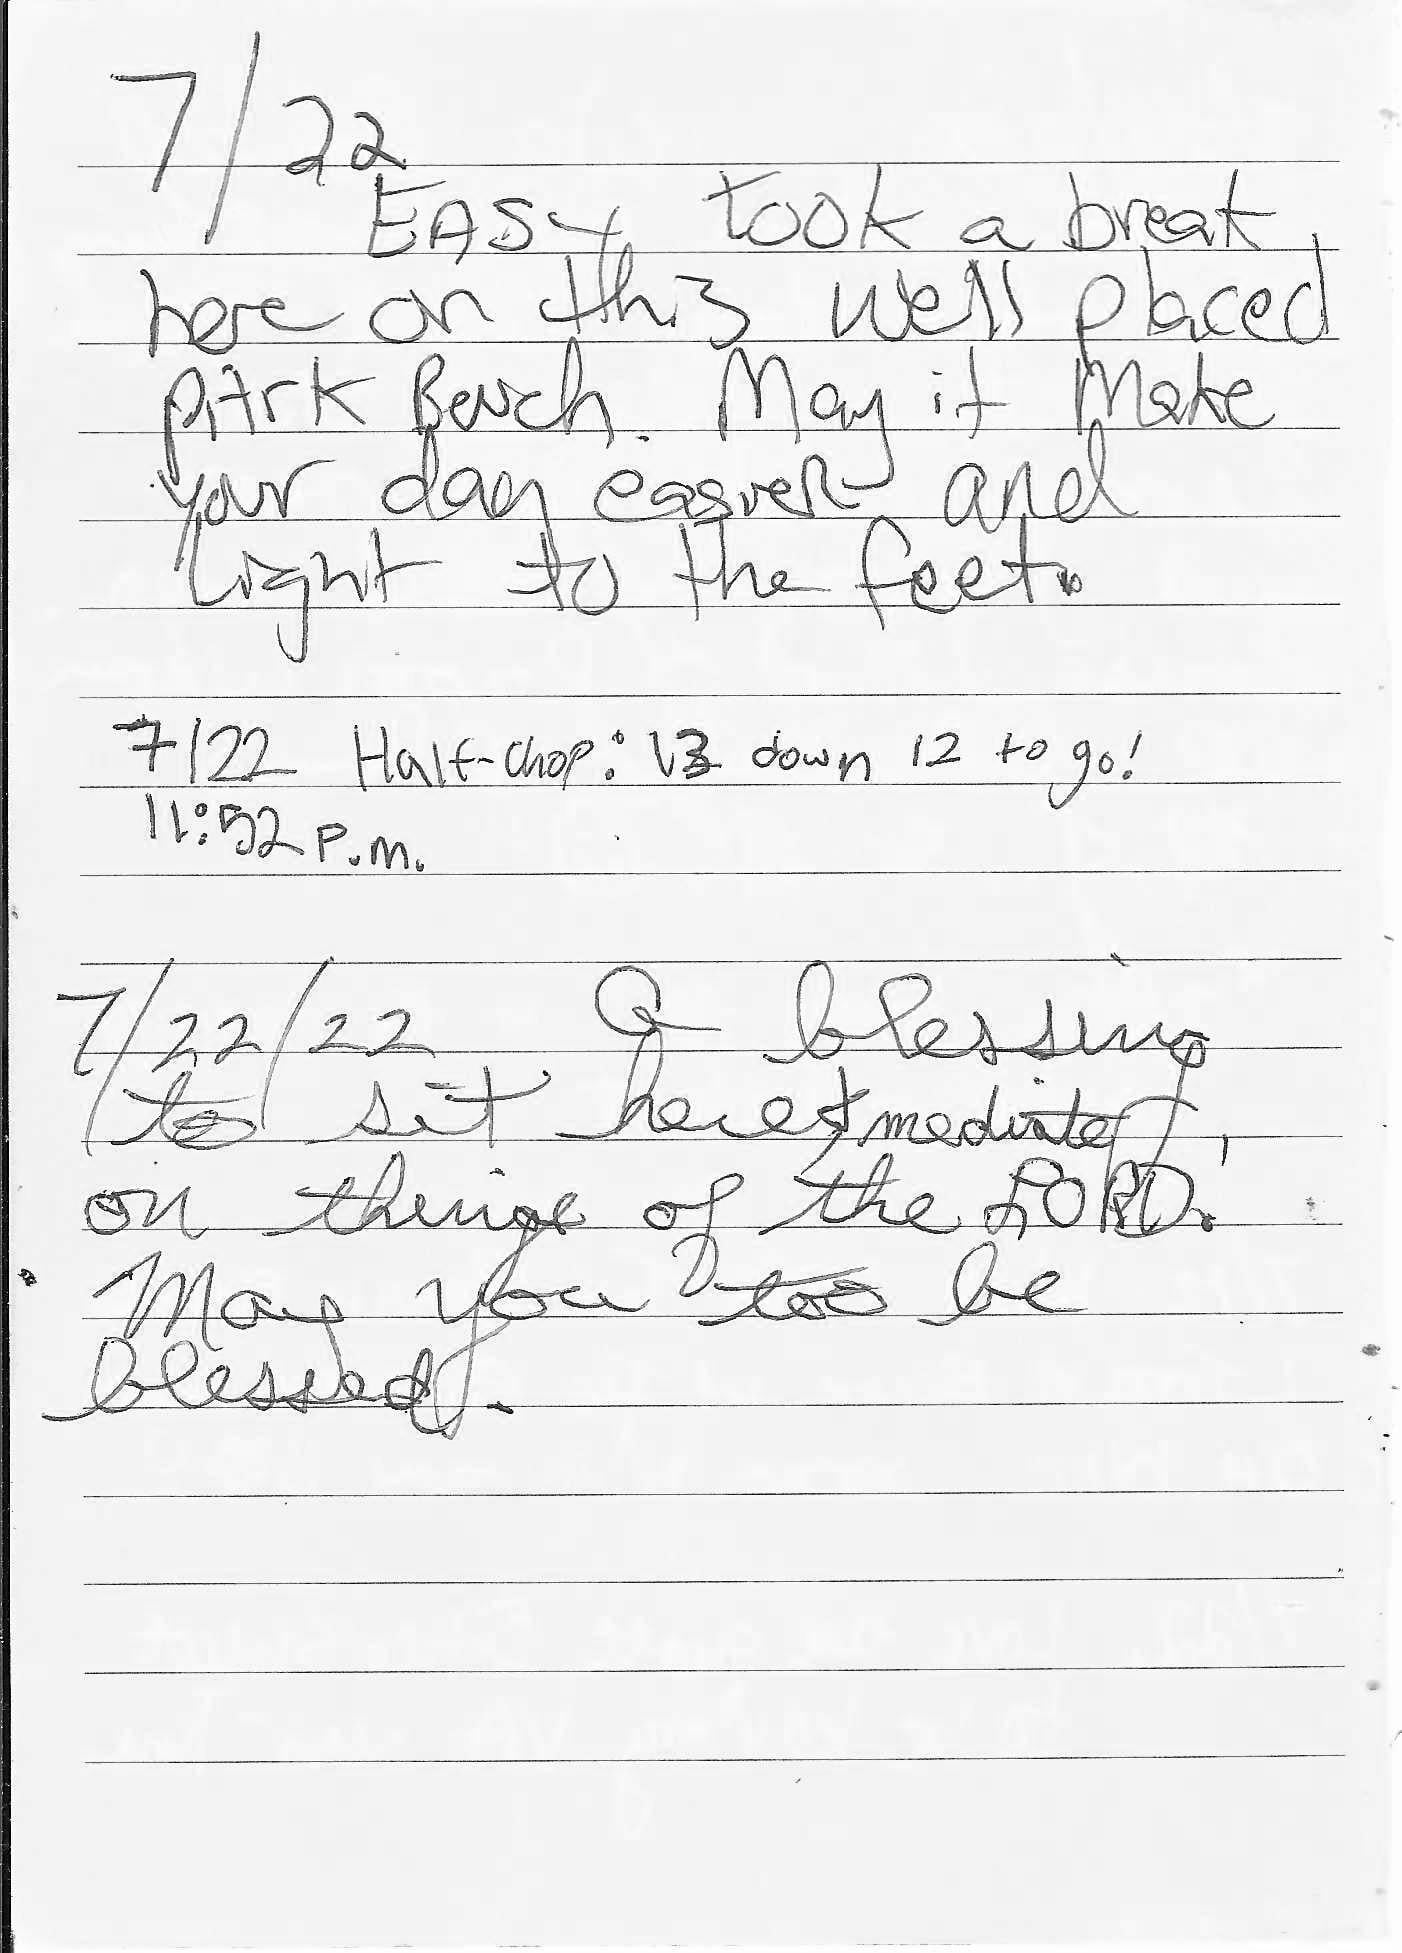 7/22
EASY took a break
here on this well placed
PArk Bench. May it Make
your day easier and
Light to the feet.
7/22 Half-Chop: 13 down 12 to go!
11:52 P.m.
7/22/22 A blessing
to sit here & mediate
on things of the LORD.
May you too be
blessed.